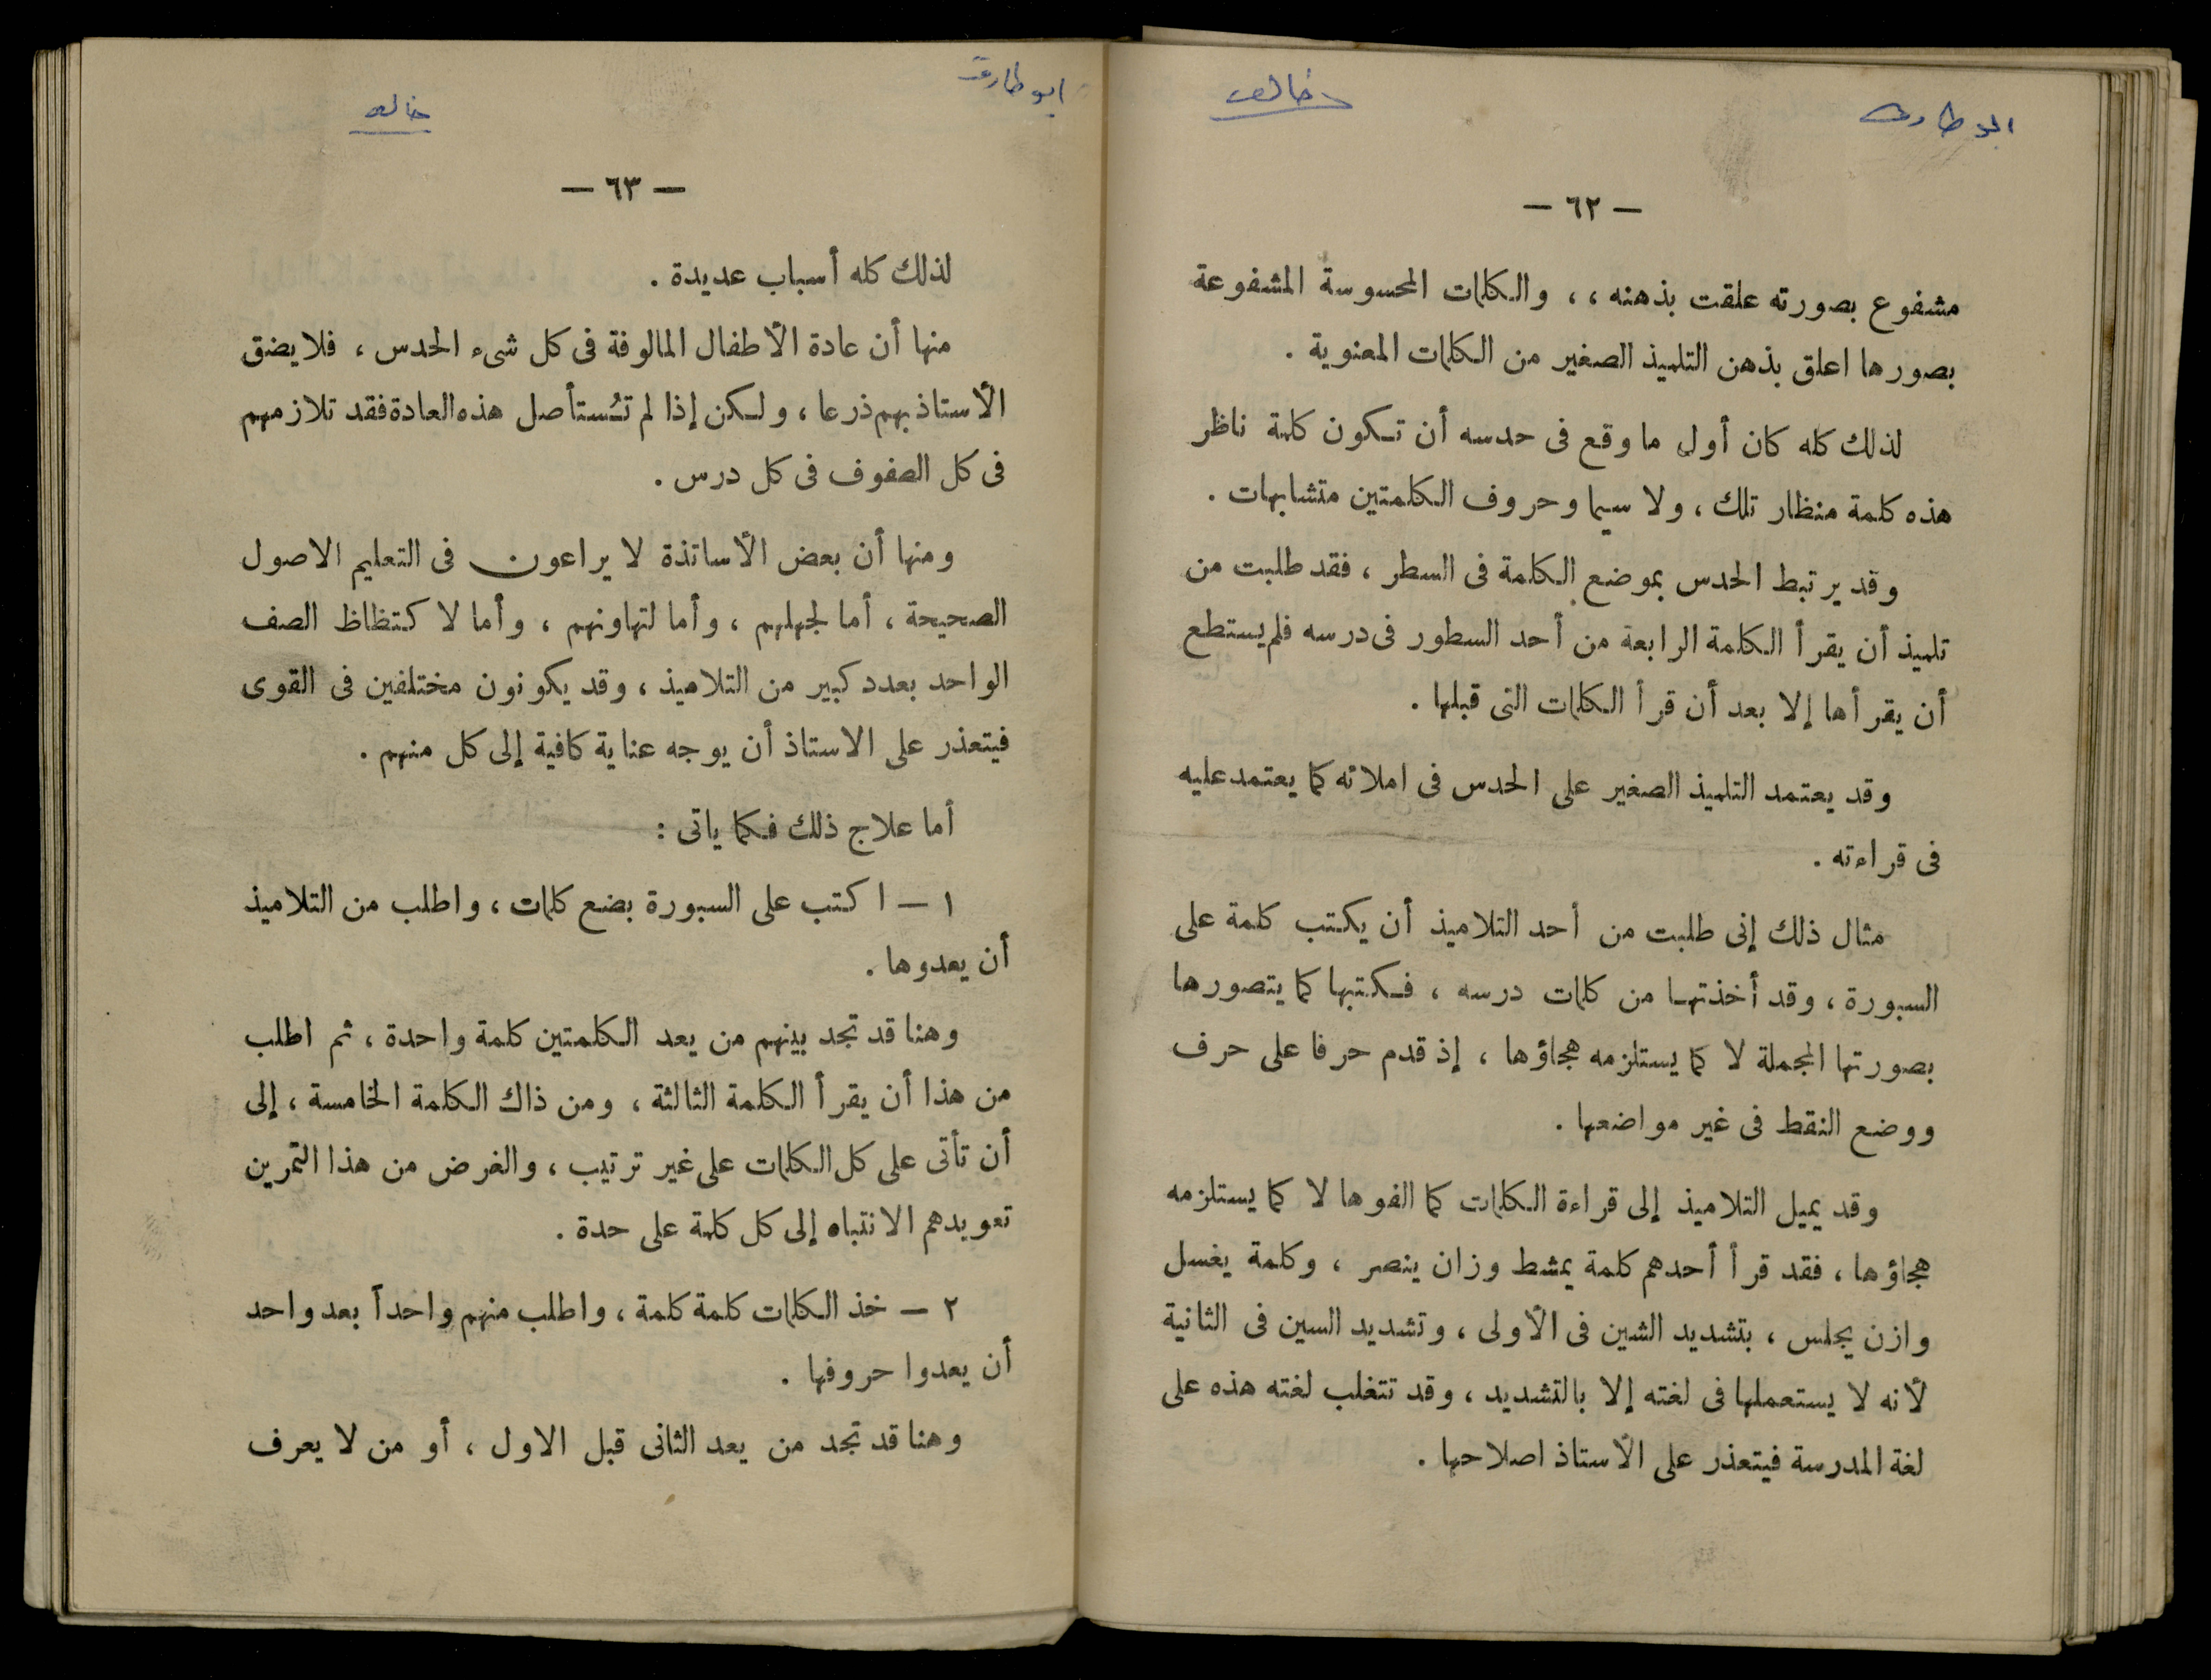 ابو طارق
خالد
— ٦٢ —
مشفوع بصورته علقت بذهنه ، ، والكلمات المحسوسة المشفوعة
بصورها اعلق بذهن التلميذ الصغير من الكلمات المعنوية .
لذلك كله كان أول ما وقع فى حدسه أن تكون كلمة ناظر
هذه كلمة منظار تلك ، ولا سيما وحروف الكلمتين متشابهات .
وقد يرتبط الحدس بموضع الكلمة فى السطر ، فقد طلبت من
تلميذ أن يقرأ الكلمة الرابعة من أحد السطور فى درسه فلم يستطع
أن يقرأها إلا بعد أن قرأ الكلمات التى قبلها .
وقد يعتمد التلميذ الصغير على الحدس فى املائه كما يعتمد عليه
فى قراءته .
مثال ذلك إنى طلبت من أحد التلاميذ أن يكتب كلمة على
السبورة ، وقد أخذتها من كلمات درسه ، فكتبها كما يتصورها
بصورتها المجملة لا كما يستلزمه هجاؤها ، إذ قدم حرفا على حرف
ووضع النقط فى غير مواضعها .
وقد يميل التلاميذ إلى قراءة الكلمات كما الفوها لا كما يستلزمه
هجاؤها ، فقد قرأ أحدهم كلمة يمشط وزان ينصر ، وكلمة يغسل
وازن يجلس ، بتشديد الشين فى الأولى ، وتشديد السين فى الثانية
لأنه لا يستعملها فى لغته إلا بالتشديد ، وقد تتغلب لغته هذه على
لغة المدرسة فيتعذر على الأستاذ اصلاحها .
ابو طارق
خالد
— ٦٣ —
لذلك كله أسباب عديدة .
منها أن عادة الأطفال المالوفة فى كل شىء الحدس ، فلا يضق
الأستاذ بهم ذرعا ، ولكن إذا لم تُستأصل هذه العادة فقد تلازمهم
فى كل الصفوف فى كل درس .
ومنها أن بعض الأساتذة لا يراعون فى التعليم الاصول
الصحيحة ، أما لجهلهم ، وأما لتهاونهم ، وأما لا كتظاظ الصف
الواحد بعدد كبير من التلاميذ ، وقد يكونون مختلفين فى القوى
فيتعذر على الاستاذ أن يوجه عناية كافية إلى كل منهم .
أما علاج ذلك فكما ياتى :
١ — اكتب على السبورة بضع كلمات ، واطلب من التلاميذ
أن يعدوها .
وهنا قد تجد بينهم من يعد الكلمتين كلمة واحدة ، ثم اطلب
من هذا أن يقرأ الكلمة الثالثة ، ومن ذاك الكلمة الخامسة ، إلى
أن تأتى على كل الكلمات على غير ترتيب ، والغرض من هذا التمرين
تعويدهم الانتباه إلى كل كلمة على حدة .
٢ — خذ الكلمات كلمة كلمة ، واطلب منهم واحداً بعد واحد
أن يعدوا حروفها .
وهنا قد تجد من يعد الثانى قبل الاول ، أو من لا يعرف